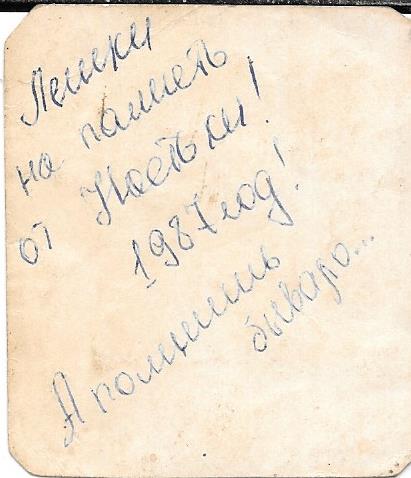 Лешки
на память
от Настьки!
1987 год!
А помнишь
бывало...